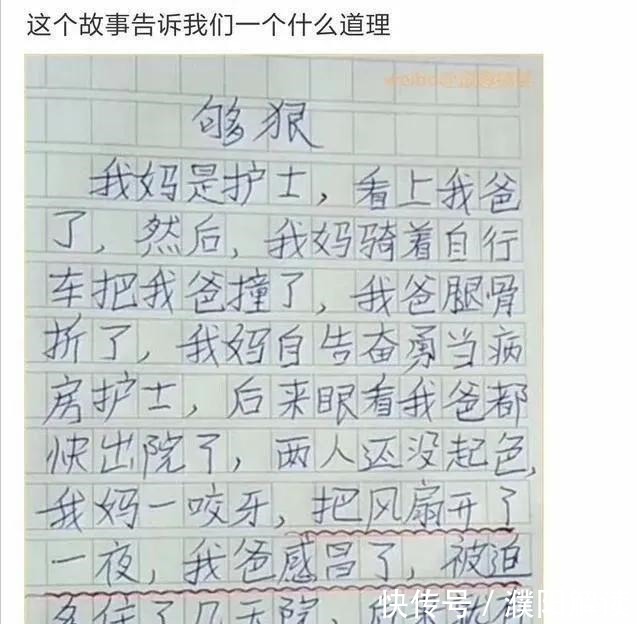 这个故事告诉我们一个什么道理
够狠
我妈是护士，看上我爸
了，然后，我妈骑着自行
车把我爸撞了，我爸腿骨
折了，我妈自告奋勇当病
房护士，后来眼看我爸都
快出院了，两人还没起色，
我妈一咬牙，把风扇开了
一夜，我爸感冒了，被迫
多住了几天院，
快传号 /